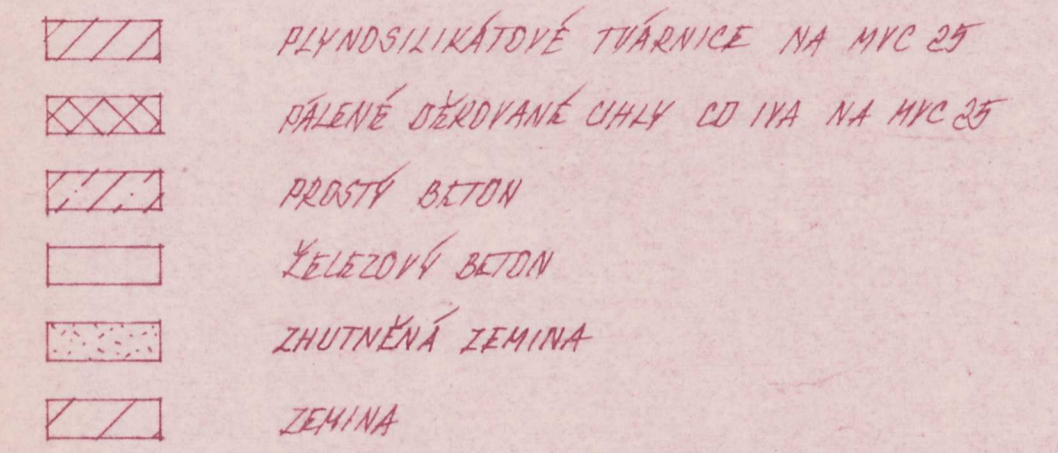 PLYNOSILIKÁTOVÉ TVÁRNICE NA MVC 25
PÁLENÉ DĚROVANÉ CIHLY CD IVA NA MVC 25
PROSTÝ BETON
ŽELEZOVÝ BETON
ZHUTNĚNÁ ZEMINA
ZEMINA